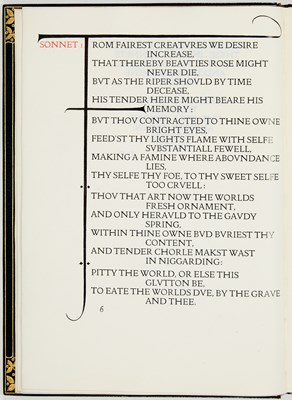 SONNET: FROM FAIREST CREATVRES WE DESIRE
INCREASE,
THAT THEREBY BEAVTIES ROSE MIGHT
NEVER DIE,
BVT AS THE RIPER SHOVLD BY TIME
DECEASE,
HIS TENDER HEIRE MIGHT BEARE HIS
MEMORY:
BVT THOV CONTRACTED TO THINE OWNE
BRIGHT EYES,
FEED'ST THY LIGHTS FLAME WITH SELFE
SVBSTANTIALL FEWELL,
MAKING A FAMINE WHERE ABOVNDANCE
LIES,
THY SELFE THY FOE, TO THY SWEET SELFE
TOO CRVELL:
THOV THAT ART NOW THE WORLDS
FRESH ORNAMENT,
AND ONLY HERAVLD TO THE GAVDY
SPRING,
WITHIN THINE OWNE BVD BVRIEST THY
CONTENT,
AND TENDER CHORLE MAKST WAST
IN NIGGARDING:
PITTY THE WORLD, OR ELSE THIS
GLVTTON BE,
TO EATE THE WORLDS DVE, BY THE GRAVE
AND THEE.
6